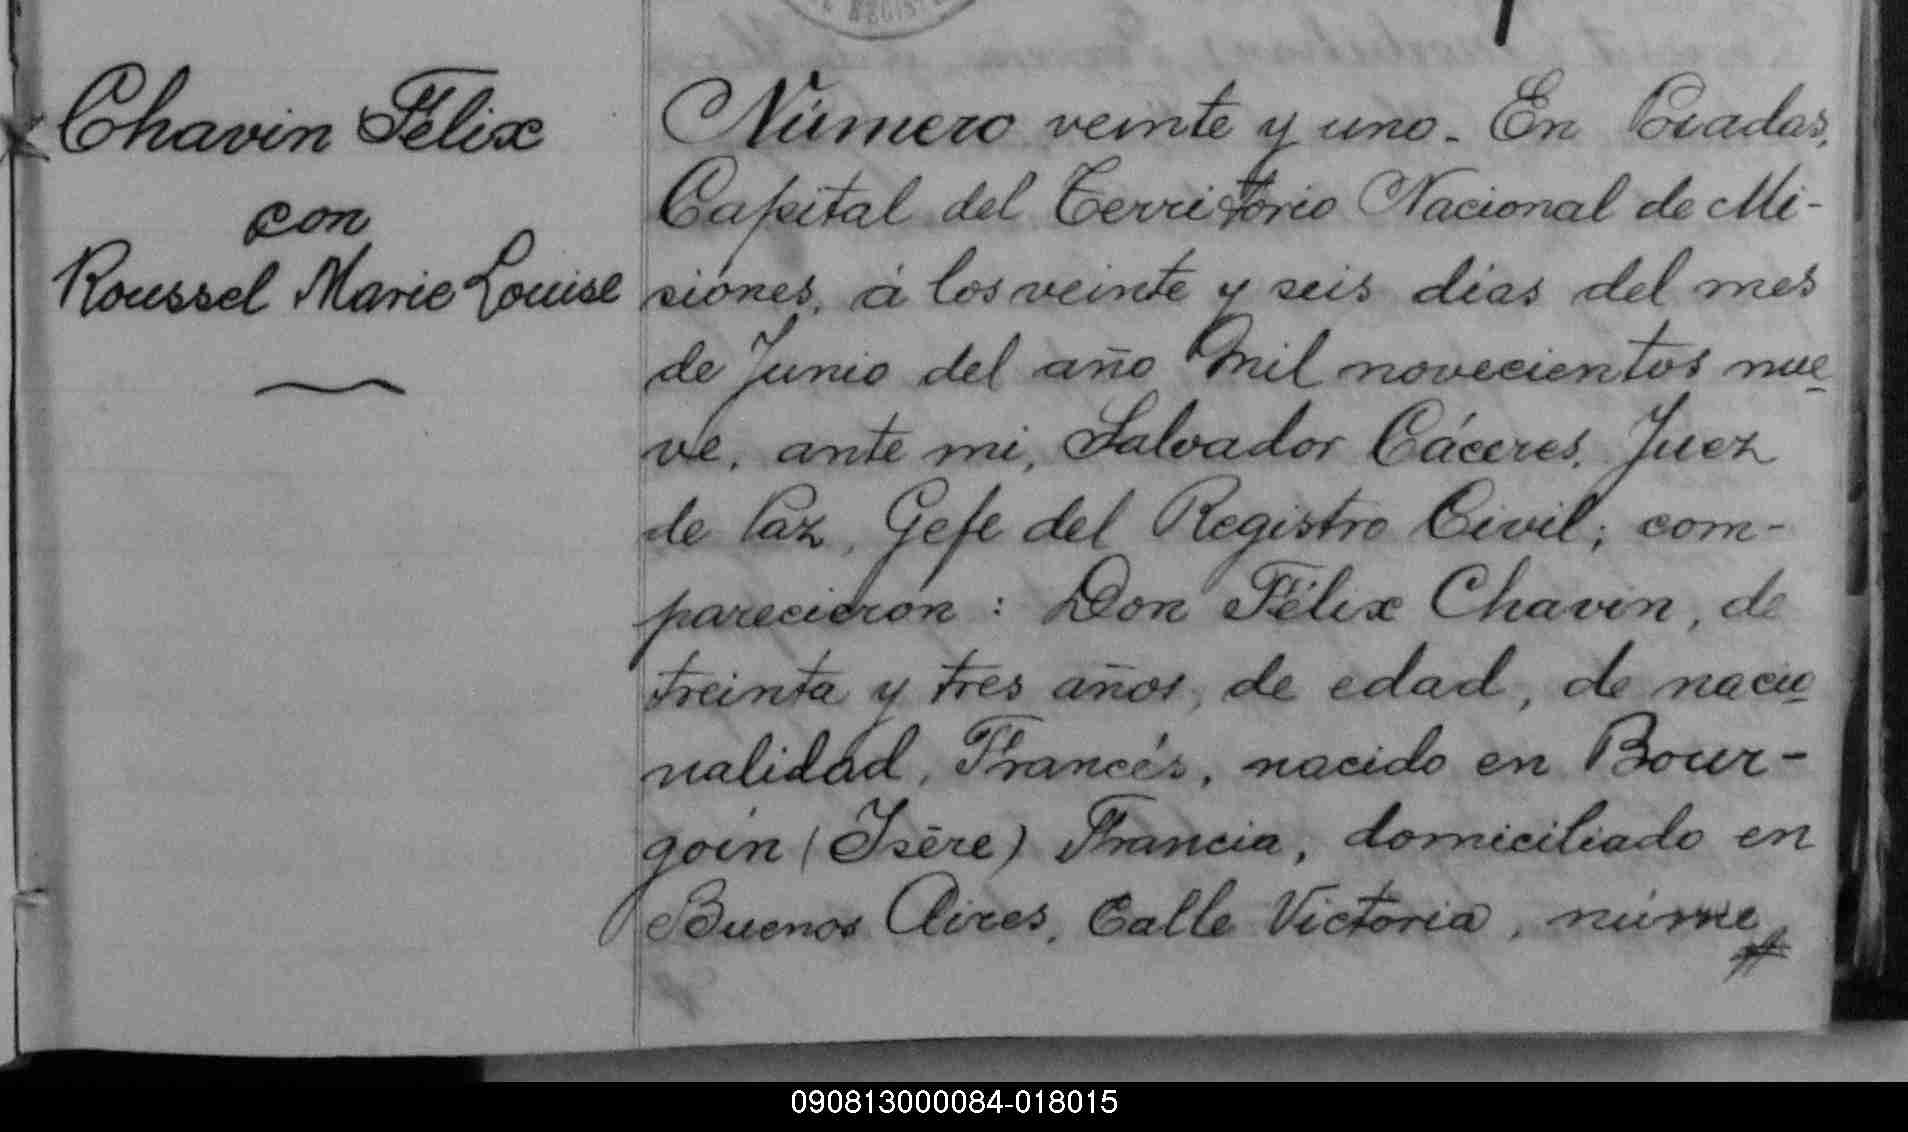 E REGIST
Chavin Félix
con
Roussel Marie Louise
Número veinte y uno. En Posadas,
Capital del Territorio Nacional de Mi-
siones, á los veinte y seis dias del mes
de Junio del año mil novecientos nue
ve, ante mi, Salvador Cáceres, Juez
de Paz, Gefe del Registro Civil; com-
parecieron : Don Félix Chavin, de
treinta y tres años, de edad, de nacio
nalidad, Francés, nacido en Bour-
goin (Isère) Francia, domiciliado en
Buenos Aires, Calle Victoria, núme
090813000084-018015